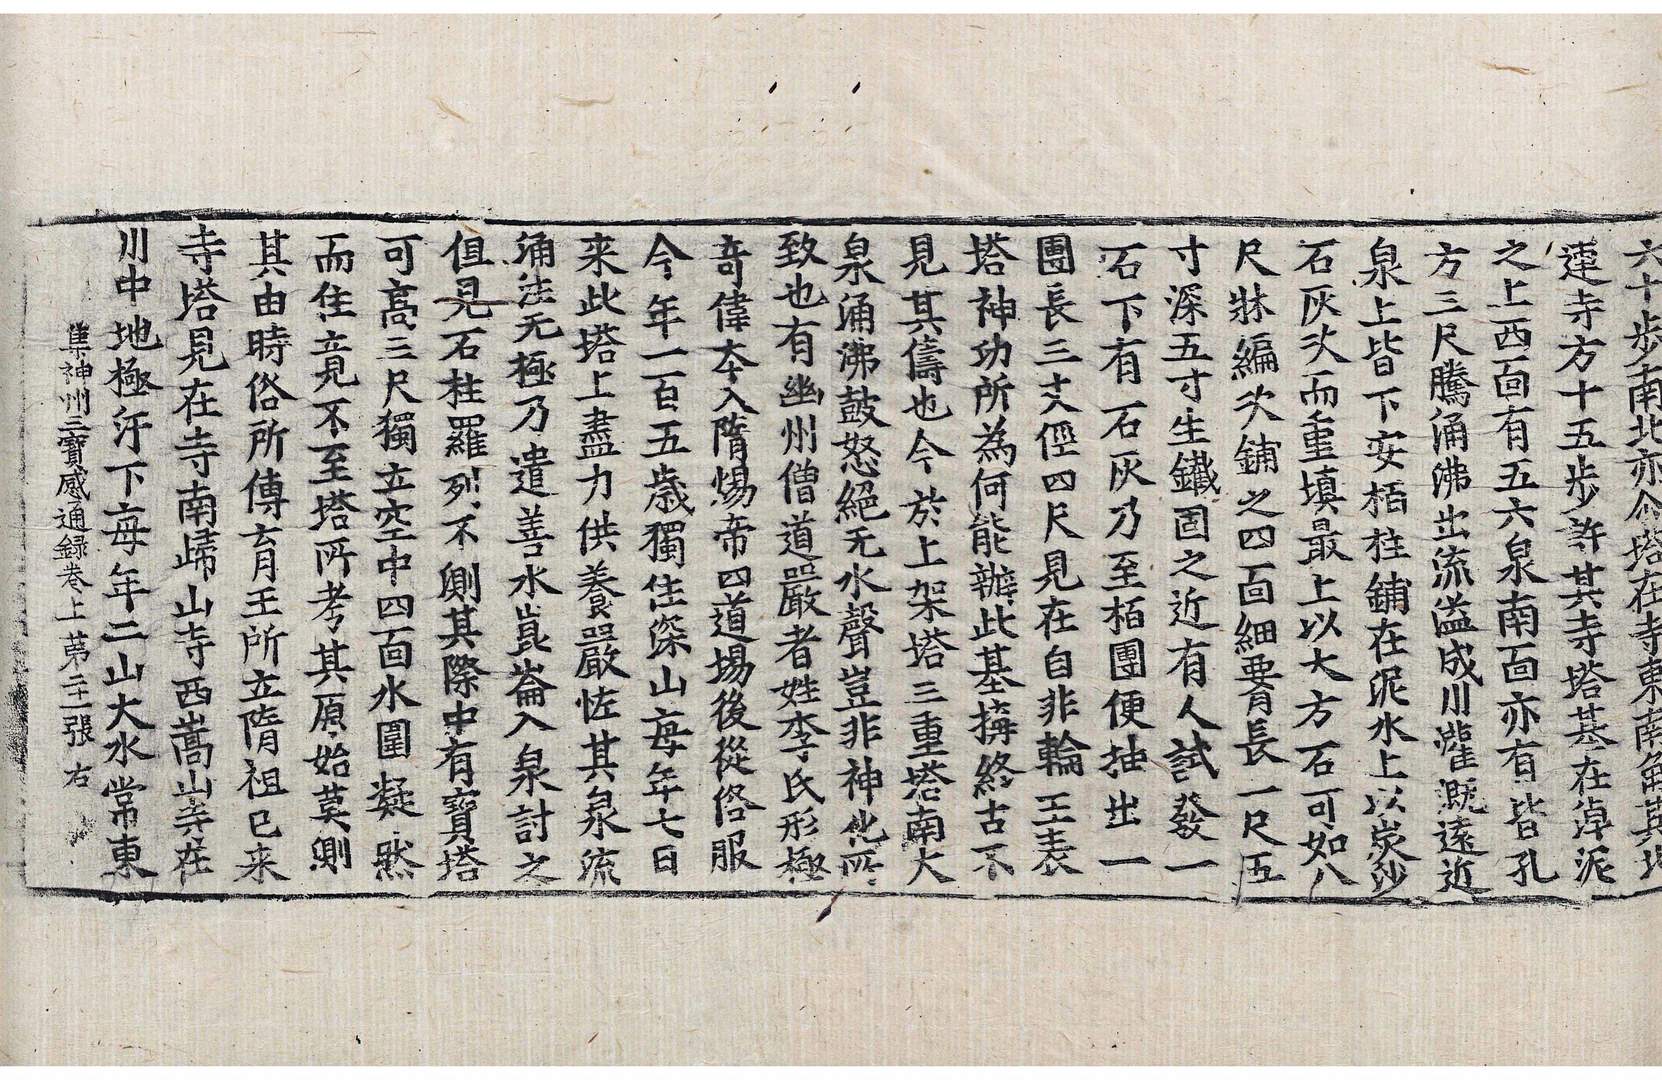 六十步南北亦尒塔在寺東南角其北
連寺方十五步許其寺塔基在淖泥
之上西面有五六泉南面亦有皆孔
方三尺騰涌沸出流溢成川灌漑遠近
泉上皆下安栢柱鋪在泥水上以炭沙
石灰次而重填最上以大方石可如八
尺牀編次鋪之四面細要長一尺五
寸深五寸生鐵固之近有人試發一
石下有石灰乃至栢團便抽出一
團長三丈徑四尺見在自非輪王表
塔神功所為何能辦此基搆終古不
見其儔也今於上架塔三重塔南大
泉涌沸鼓怒絕无水聲豈非神化所
致也有幽州僧道嚴者姓李氏形極
奇偉本入隋煬帝四道場後從俗服
今年一百五歲獨住深山每年七日
来此塔上盡力供養嚴怪其泉流
涌注无極乃遣善水崑崙入泉討之
但見石柱羅列不測其際中有寶塔
可高三尺獨立空中四面水圍凝然
而住竟不至塔所考其原始莫測
其由時俗所傳育王所立隋祖已来
寺塔見在寺南歸山寺西嵩山寺在
川中地極汙下每年二山大水常東
集神州三寶感通録卷上 第二十一張 右